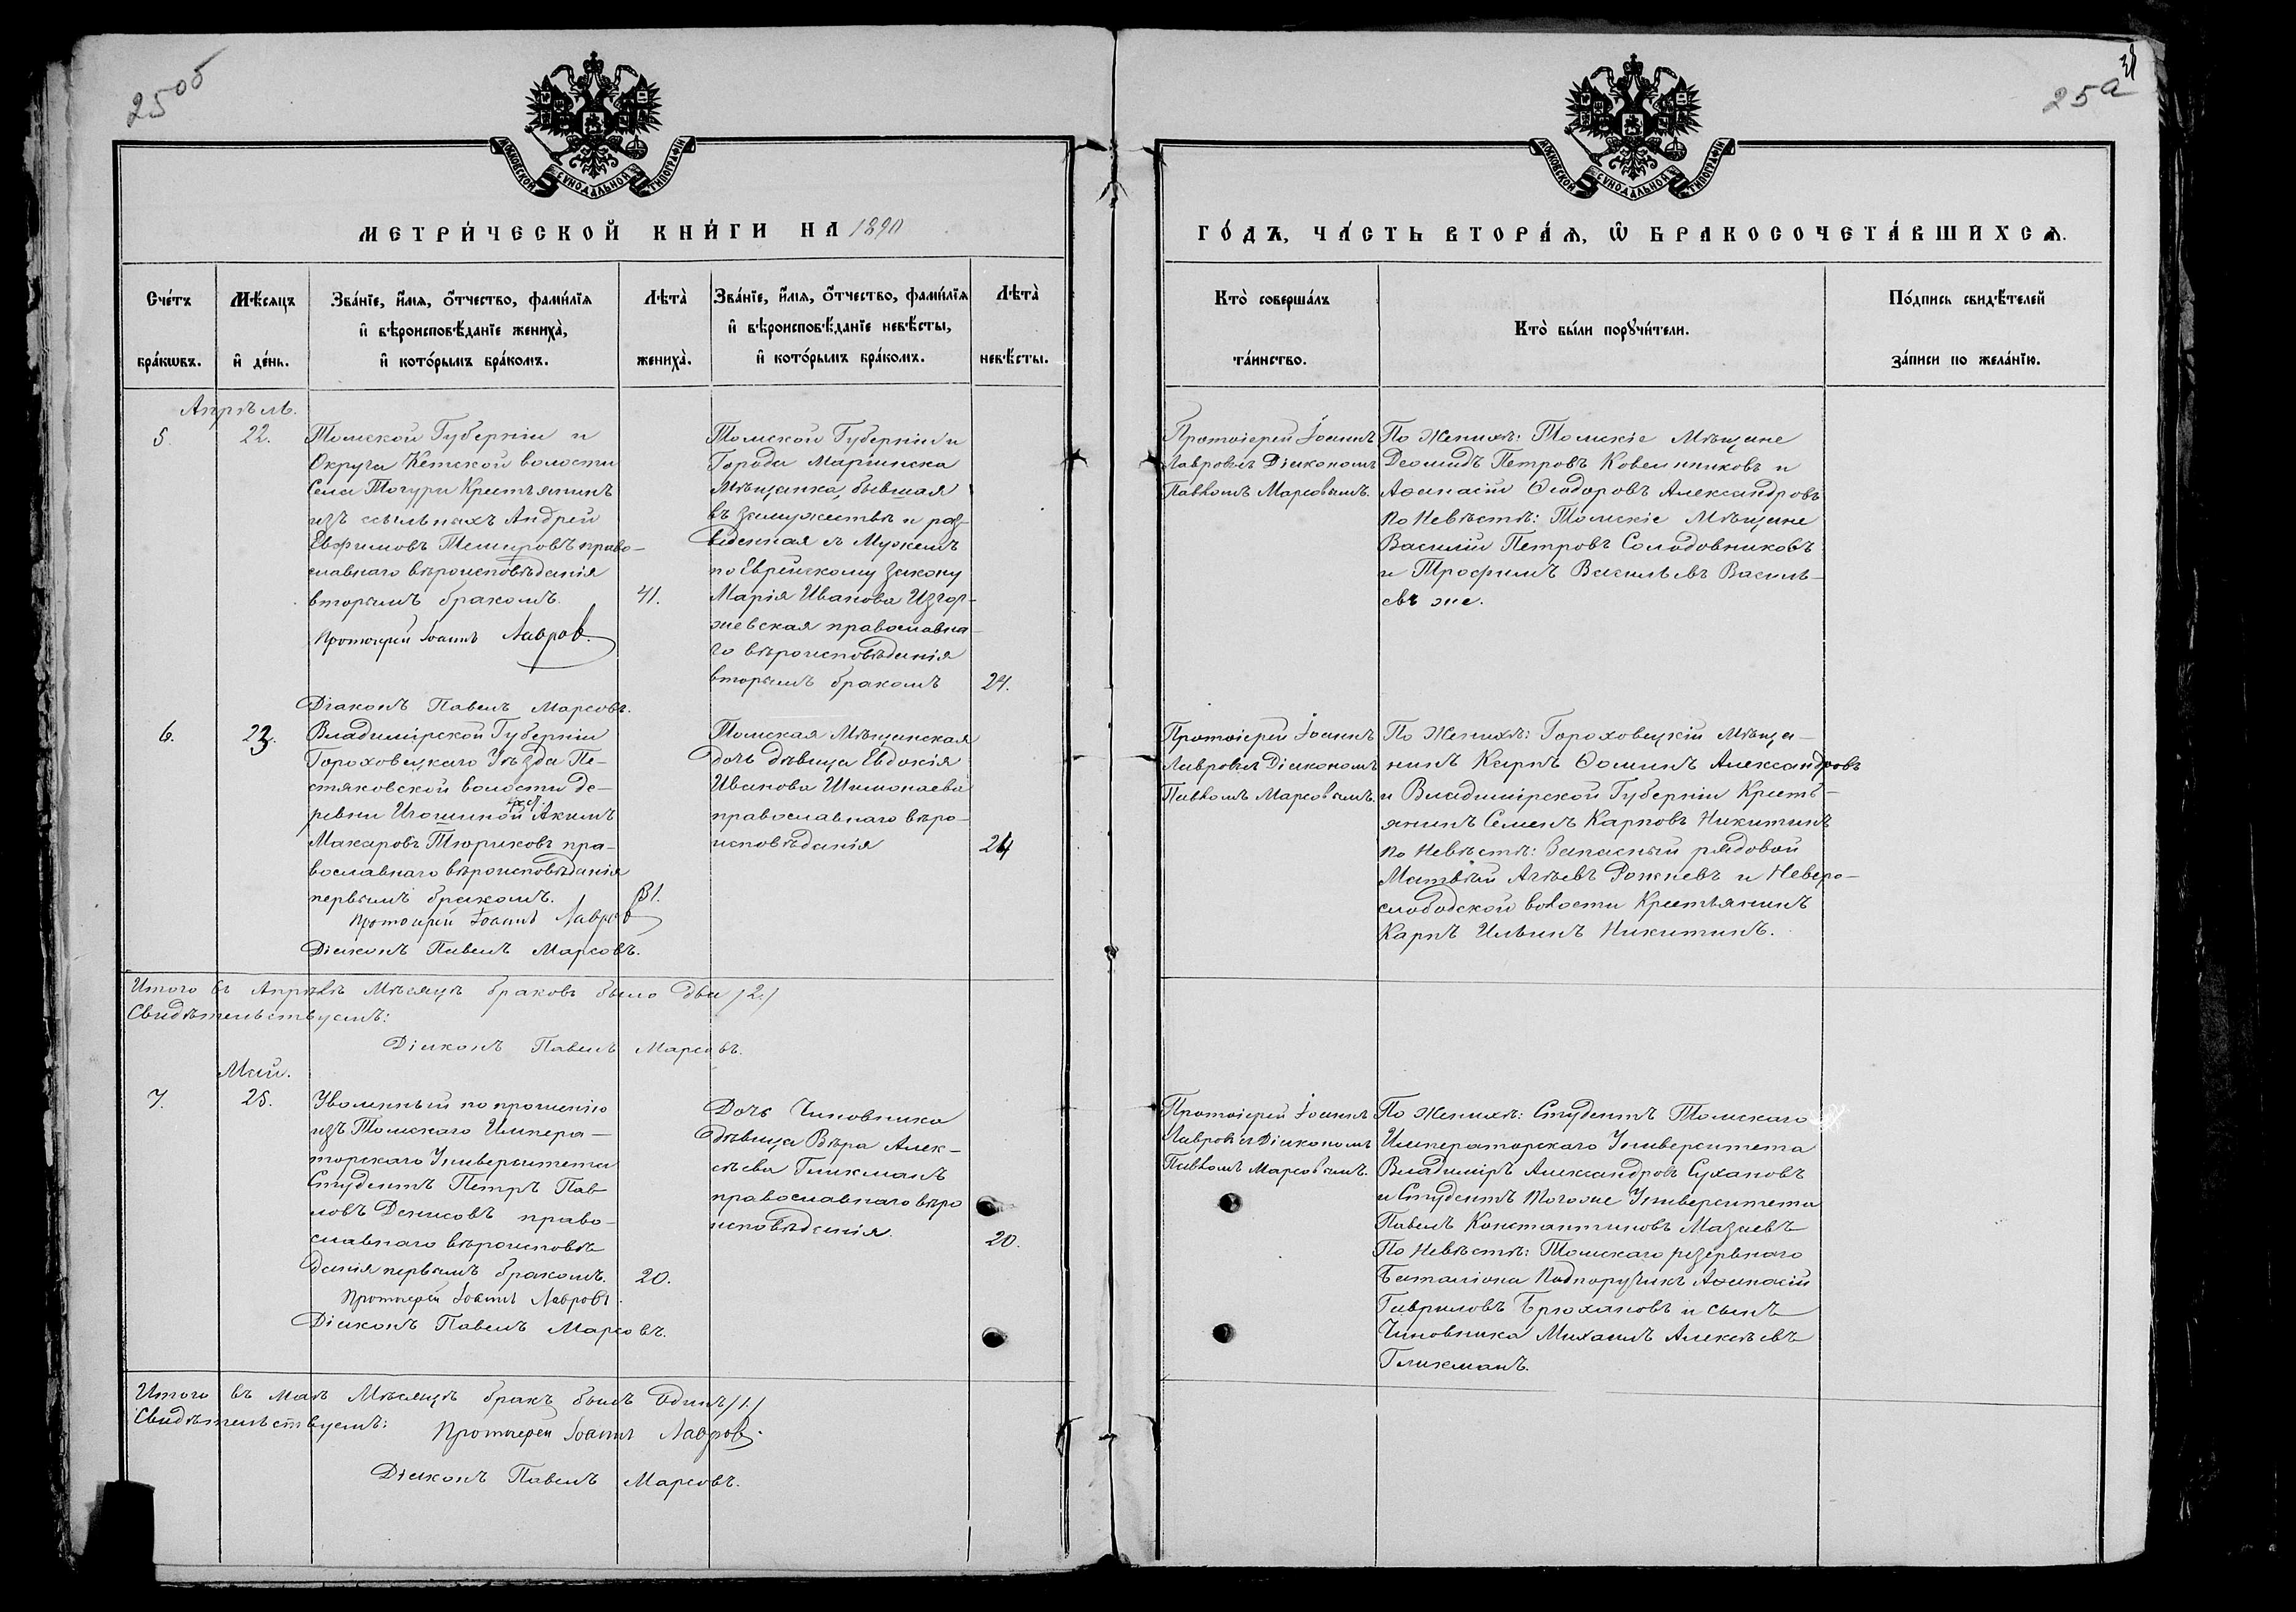 25об
25а
МОСКОВСКОЙ СѴНОДАЛЬНОЙ ТИПОГРАФІИ
МЕТРИ́ЧЕСКОЙ КНИ́ГИ НА 1890
Сче́тъ бра́кѡвъ.
Мѣ́сяцъ и҆ де́нь.
Зва́нїе, и҆́мѧ, ѻ҆́тчество, фами́лїѧ
и҆ вѣроисповѣ́данїе жениха̀,
и҆ кото́рымъ бра́комъ.
Лѣта̀ жениха̀.
Зва́нїе, и҆́мѧ, ѻ҆́тчество, фами́лїѧ
и҆ вѣроисповѣ́данїе невѣ́сты,
и҆ кото́рымъ бра́комъ.
Лѣта̀ невѣ́сты.
Апрѣль.
5. 22.
Томской Губерніи и
Округа Кетской волости
Села Тогура Крестьянинъ
изъ ссыльныхъ Андрей
Евфимовъ Темировъ право-
славнаго вѣроисповѣданія
вторымъ бракомъ. 41.
Протоіерей Іоаннъ Лавровъ.
Діаконъ Павелъ Марсовъ.
Томской Губерніи и
Города Маріинска
Мѣщанка, бывшая
въ замужествѣ и раз-
веденная съ Мужемъ
по Еврейскому закону
Марія Иванова Изгор-
жевская православна-
го вѣроисповѣданія
вторымъ бракомъ 24.
6. 23.
Владимірской Губерніи
Гороховецкаго Уѣзда Пе-
стяковской волости де-
ревни Игошиной Акимъ
Макаровъ Тюриковъ пра-
вославнаго вѣроисповѣданія
первымъ бракомъ. 31.
Протоіерей Іоаннъ Лавровъ
Діаконъ Павелъ Марсовъ.
Томская Мѣщанская
дочь дѣвица Евдокія
Иванова Шимонаева
православнаго вѣро-
исповѣданія 24
Итого въ Апрѣлѣ Мѣсяцѣ браковъ было два /2./
Свидѣтельствуемъ:
Діаконъ Павелъ Марсовъ.
Май.
7. 25.
Уволенный по прошенію
изъ Томскаго Импера-
торскаго Университета
Студентъ Петръ Пав
ловъ Денисовъ право-
славнаго вѣроисповѣ
данія первымъ бракомъ. 20.
Протоіерей Іоаннъ Лавровъ.
Діаконъ Павелъ Марсовъ.
Дочь Чиновника
дѣвица Вѣра Алек-
сѣева Гликманъ
православнаго вѣро
исповѣданія. 20.
Итого въ маѣ Мѣсяцѣ бракъ былъ один /1./
Свидѣтельствуемъ: Протоіерей Іоаннъ Лавровъ.
Діаконъ Павелъ Марсовъ.
МОСКОВСКОЙ СѴНОДАЛЬНОЙ ТИПОГРАФІИ
ГО́ДЪ, ЧА́СТЬ ВТОРА́Ѧ, Ѽ БРАКОСОЧЕТА́ВШИХСѦ.
Кто̀ соверша́лъ та́инство.
Кто̀ бы́ли порꙋчи́тели.
По́дпись свидѣ́телей за́писи по жела́нїю.
Протоіерей Іоаннъ
Лавровъ съ Діакономъ
Павломъ Марсовымъ.
По Женихѣ: Томскіе Мѣщане
Деомидъ Петровъ Ковешниковъ и
Аѳанасій Ѳеодоровъ Александровъ
По Невѣстѣ: Томскіе Мѣщане
Василій Петровъ Солодовниковъ
и Трофимъ Васильевъ Василь-
евъ же.
Протоіерей Іоаннъ
Лавровъ съ Діакономъ
Павломъ Марсовымъ.
По Женихѣ: Гороховецкій Мѣща-
нинъ Карпъ Ѳоминъ Александровъ
и Владимірской Губерніи Кресть-
янинъ Семенъ Карповъ Никитинъ
По Невѣстѣ: Запасный рядовой
Матвѣй Агѣевъ Рожневъ и Неверо-
слободской волости Крестьянинъ
Карпъ Ильинъ Никитинъ.
Протоіерей Іоаннъ
Лавровъ съ Діакономъ
Павломъ Марсовымъ.
По Женихѣ: Студентъ Томскаго
Императорскаго Университета
Владиміръ Александровъ Сухановъ
и Студентъ того же Университета
Павелъ Константиновъ Мазаевъ
По Невѣстѣ: Томскаго резервнаго
Баталіона Подпоручикъ Аѳанасій
Гавриловъ Брюхановъ и сынъ
Чиновника Михаилъ Алексѣевъ
Гликманъ.